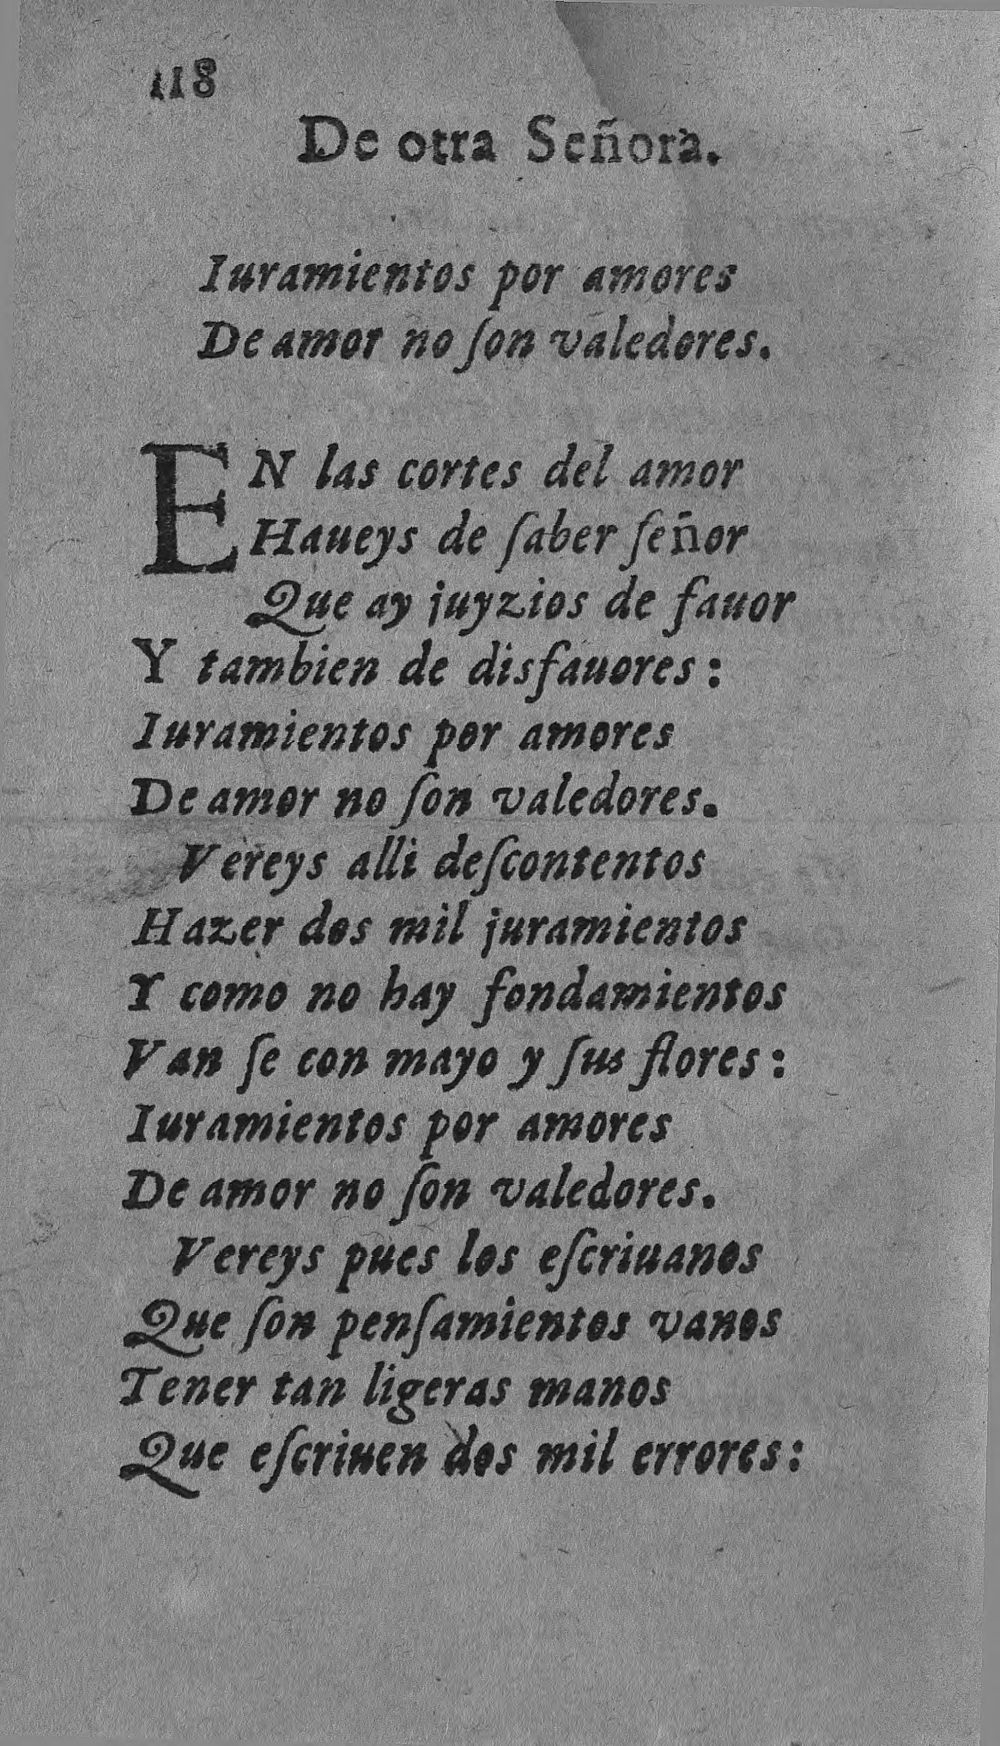 118
De otra Señora.
Iuramientos por amores
De amor no ſon valedores.
EN las cortes del amor
Haueys de ſaber ſeñor
Que ay juyzios de fauor
Y tambien de disfauores:
Iuramientos por amores
De amor no ſon valedores.
Vereys alli deſcontentos
Hazer dos mil juramientos
Y como no hay fondamientos
Van ſe con mayo y ſus flores:
Iuramientos por amores
De amor no ſon valedores.
Vereys pues los eſcriuanos
Que ſon penſamientos vanos
Tener tan ligeras manos
Que eſcriuen dos mil errores: